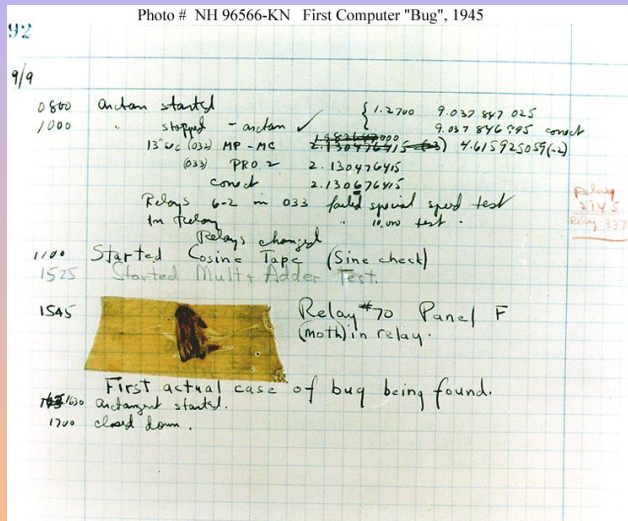 Photo # NH 96566-KN First Computer "Bug", 1945
92
9/9
0800 Antan started
1000 " stopped - antan ✓ { 1.2700 9.037 847 025
9.037 846 995 conect
13"uc (032) MP - MC 2.130476415 (-3) 4.615925059(-2)
(033) PRO 2 2.130476415
conect 2.130676415
Relays 6-2 in 033 failed special speed test
in Relay " 10.000 test .
Relay
2145
Relay 337
Relays changed
1100 Started Cosine Tape (Sine check)
1525 Started Mult + Adder Test.
1545 Relay #70 Panel F
(Moth) in relay.
First actual case of bug being found.
1630 antangent started.
1700 closed down.